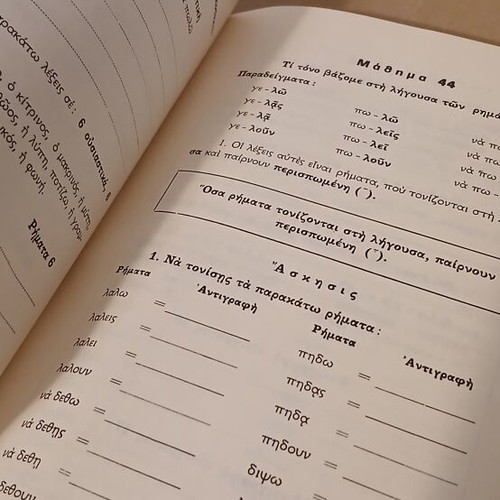 ρακάτω λέξεις σέ: 6 οὐσιαστικά, 8
ὁ κίτρινος, ὁ μακρινός, ἡ
ἡ λύπη, ποτίζω, ἡ
ἡ φωνή.
Ρήματα 6
Μάθημα 44
Τί τόνο βάζομε στὴ λήγουσα τῶν
Παραδείγματα:
γε - λῶ πω - λῶ νὰ
γε - λᾷς πω - λεῖς νὰ
γε - λᾷ πω - λεῖ νὰ
γε - λοῦν πω - λοῦν νὰ
1. Οἱ λέξεις αὐτὲς εἶναι ρήματα, ποὺ τονίζονται στὴ
σα καὶ παίρνουν περισπωμένη (῀).
Ὅσα ρήματα τονίζονται στὴ λήγουσα, παίρνουν
περισπωμένη (῀).
Ἄσκησις
1. Νὰ τονίσης τὰ παρακάτω ρήματα:
Ρήματα Ἀντιγραφὴ Ρήματα Ἀντιγραφὴ
λαλω = πηδω =
λαλεις = πηδᾳς =
λαλει = πηδᾳ =
λαλουν = πηδουν =
νὰ δεθω = διψω =
νὰ δεθῃς =
νὰ δεθῃ =
δεθουν